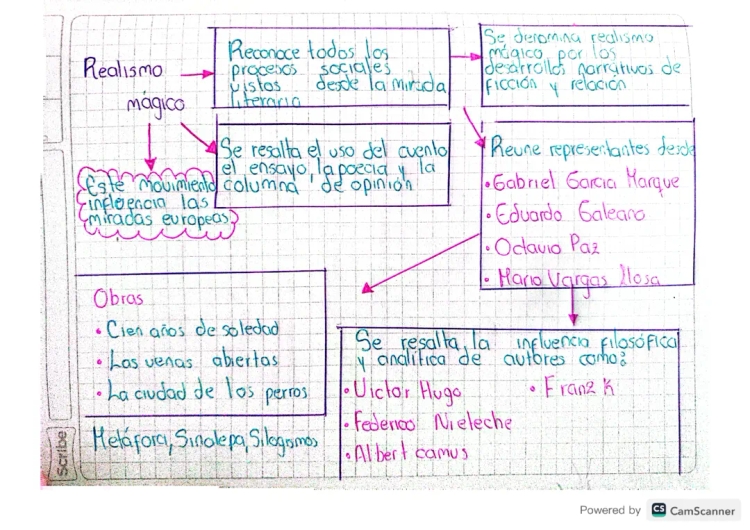 Realismo
mágico
Reconoce todos los
procesos sociales
vistos desde la mirada
literaria
Se denomina realismo
mágico por los
desarrollos narrativos de
ficción y relación
Se resalta el uso del cuento
el ensayo, la poecia y la
columna de opinión
Este movimiento
influencia las
miradas europeas
Reune representantes desde
• Gabriel Garcia Marque
• Eduardo Galeano
• Octavio Paz
• Mario Vargas llosa
Obras
• Cien años de soledad
• Las venas abiertas
• La ciudad de los perros
Metáfora, Sinolepa, Silogismos
Se resalta, la influencia filosófica
y analítica de autores como:
• Victor Hugo
• Franz K
• Federico Nieleche
• Albert camus
Scribe
Powered by CS CamScanner